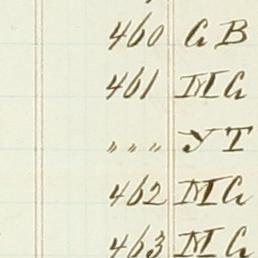 460 G B
461 M G
" " " Y T
462 M G
463 M G